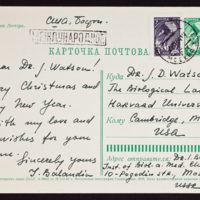 США. Бостон.
МЕЖДУНАРОДНОЕ
КАРТОЧКА ПОЧТОВАЯ
Dear Dr. Watson!
Merry Christmas and
Happy New Year.
With my love and
wishes for your
Sincerely yours
I. Balandin
Куда Dr. J. D. Watson
The Biological Lab
Harvard University
Кому Cambridge, M
USA
Адрес отправителя: Dr. I. B
Inst. of Biol. a. Med.
10-Pogodin str., Mo
USSR